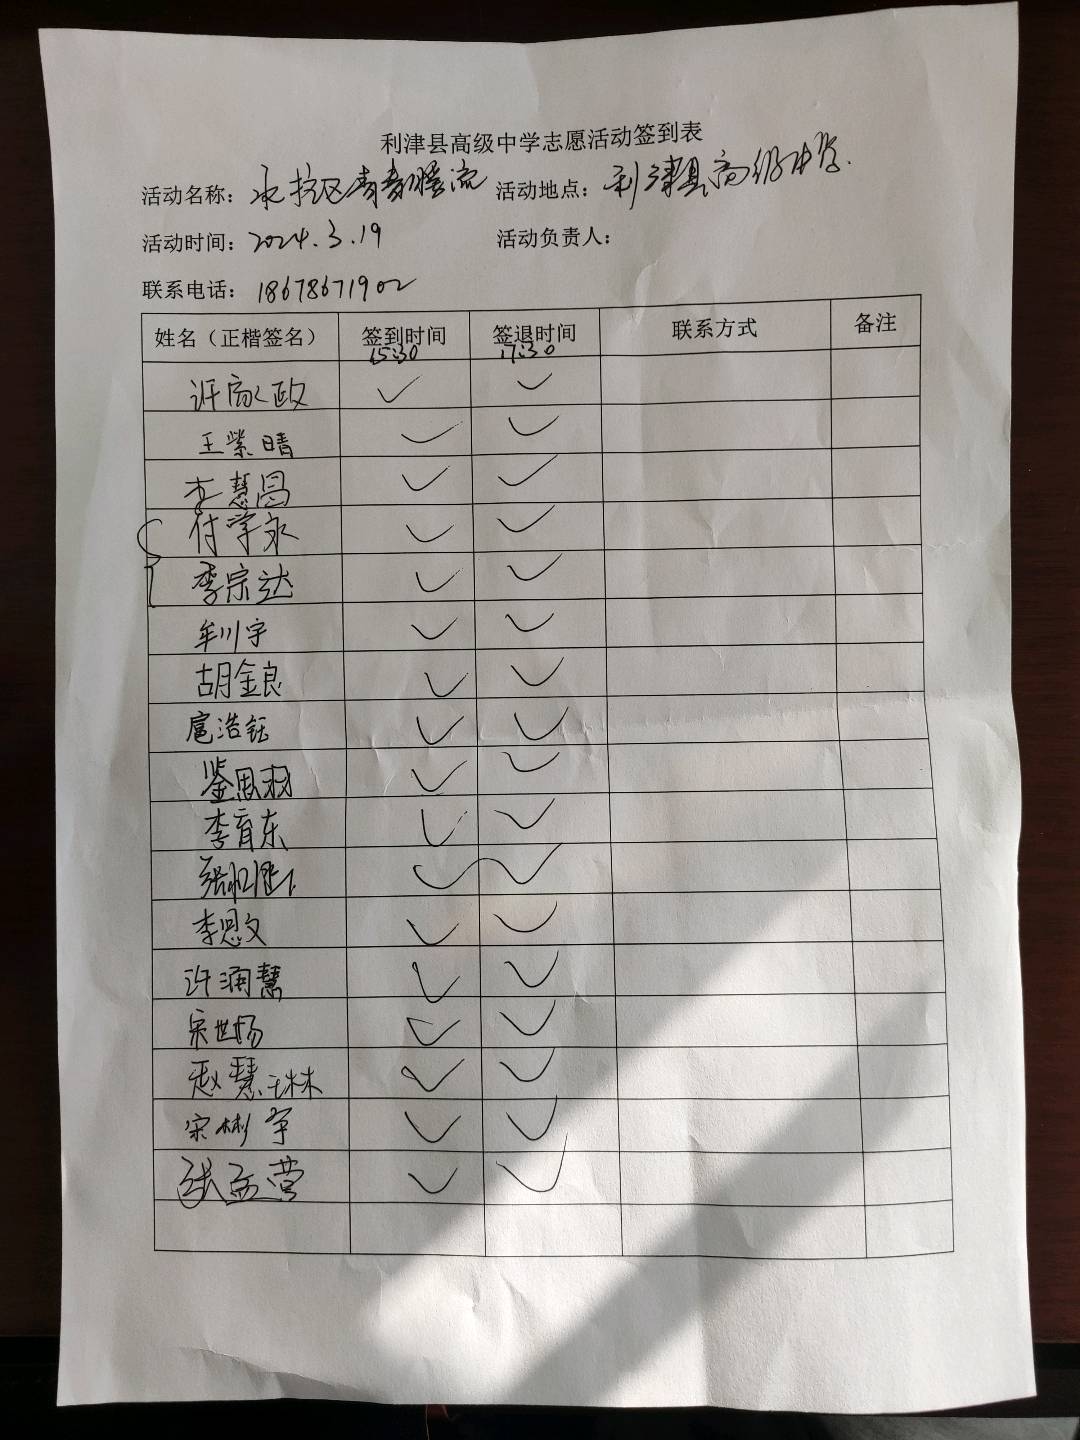 利津县高级中学志愿活动签到表
活动名称： 活动地点：利津县高级中学
活动时间：2024.3.19 活动负责人：
联系电话：18678671902
姓名（正楷签名） 签到时间 签退时间 联系方式 备注
15:30 17:30
许家政
王紫晴
李慧昌
付学永
李宗达
牟川宇
胡金良
扈浩钰
鉴思羽
李育东
李恩文
许润慧
宋世杨
赵慧琳
宋彬
张孟营